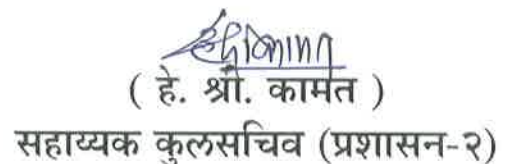 ( हे. श्री. कामत )
सहाय्यक कुलसचिव (प्रशासन-२)